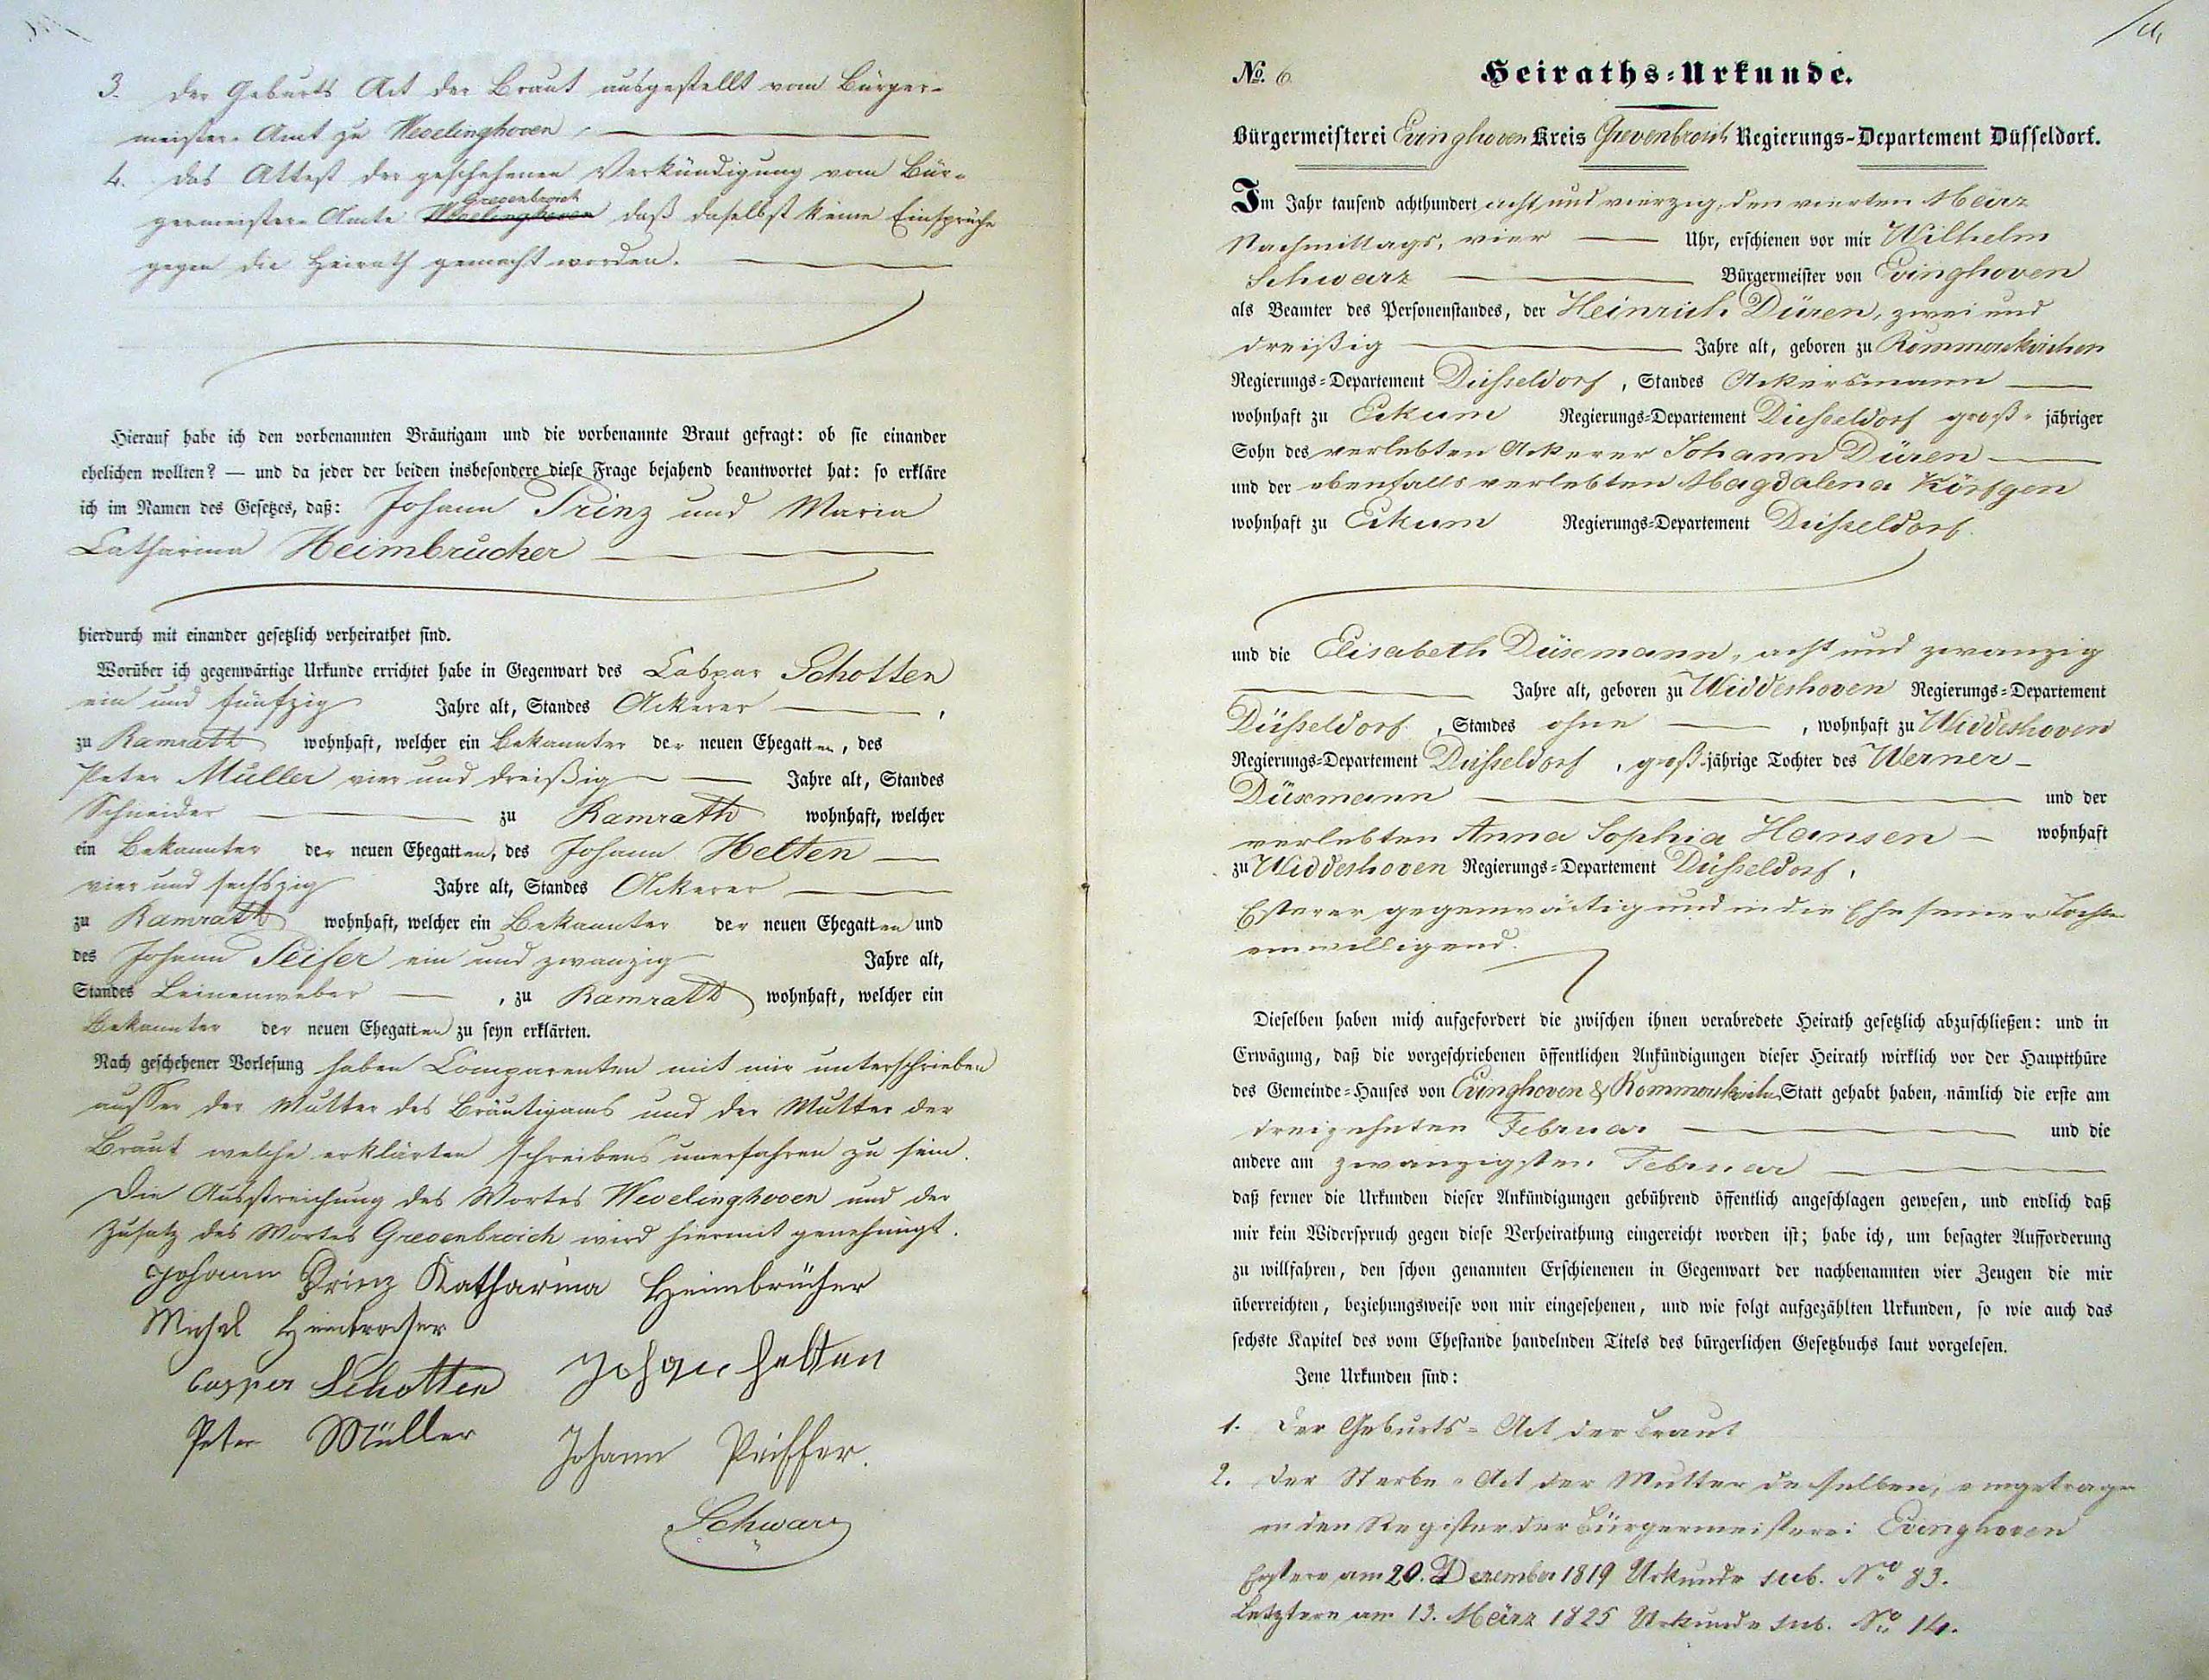 3. Der Geburts Act der Braut ausgestellt vom Bürger-
meister-Amt zu Wevelinghoven.
4. Das Attest der geschehenen Verkündigung vom Bür-
Grevenbroich
germeister-Amte Wevelinghoven daß daselbst keine Einsprüche
gegen die Heirath gemacht worden.
Hierauf habe ich den vorbenannten Bräutigam und die vorbenannte Braut gefragt: ob sie einander
ehelichen wollten? — und da jeder der beiden insbesondere diese Frage bejahend beantwortet hat: so erkläre
ich im Namen des Gesetzes, daß: Johann Prinz und Maria
Catharina Heimbrücher
hierdurch mit einander gesetzlich verheirathet sind.
Worüber ich gegenwärtige Urkunde errichtet habe in Gegenwart des Caspar Schotten
ein und fünfzig Jahre alt, Standes Ackerer ,
zu Ramrath wohnhaft, welcher ein Bekannter der neuen Ehegatten, des
Peter Müller vier und dreißig Jahre alt, Standes
Schneider zu Ramrath wohnhaft, welcher
ein Bekannter der neuen Ehegatten, des Johann Helten
vier und sechszig Jahre alt, Standes Ackerer
zu Ramrath wohnhaft, welcher ein Bekannter der neuen Ehegatten und
des Johann Peifer ein und zwanzig Jahre alt,
Standes Leinenweber , zu Ramrath wohnhaft, welcher ein
Bekannter der neuen Ehegatten zu seyn erklärten.
Nach geschehener Vorlesung haben Comparenten mit mir unterschrieben
ausser der Mutter des Bräutigams und der Mutter der
Braut welche erklärten schreibens unerfahren zu sein.
Die Ausstreichung des Wortes Wevelinghoven und der
Zusatz des Wortes Grevenbroich wird hiermit genehmigt.
Johann Prinz Katharina Heimbrücher
Michel Heimbrocher
Casper Schotten Johan Helten
Peter Müller Johann Peiffer.
Schwarz
No. 6 Heiraths-Urkunde.
Bürgermeisterei Evinghoven Kreis Grevenbroich Regierungs-Departement Düsseldorf.
Im Jahr tausend achthundert acht und vierzig, den vierten März
Nachmittags, vier Uhr, erschienen vor mir Wilhelm
Schwarz Bürgermeister von Evinghoven
als Beamter des Personenstandes, der Heinrich Düren, zwei und
dreißig Jahre alt, geboren zu Rommerskirchen
Regierungs-Departement Düsseldorf, Standes Ackersmann
wohnhaft zu Eckum Regierungs-Departement Düsseldorf groß-jähriger
Sohn des verlebten Ackerer Johann Düren
und der ebenfalls verlebten Magdalena Körfgen
wohnhaft zu Eckum Regierungs-Departement Düsseldorf.
und die Elisabeth Düxmann, acht und zwanzig
Jahre alt, geboren zu Widdeshoven Regierungs-Departement
Düsseldorf, Standes ohne , wohnhaft zu Widdeshoven
Regierungs-Departement Düsseldorf, groß-jährige Tochter des Werner
Düxmann und der
verlebten Anna Sophia Hansen wohnhaft
zu Widdeshoven Regierungs-Departement Düsseldorf,
Esterer gegenwärtig und in die Ehe seiner Tochter
einwilligend.
Dieselben haben mich aufgefordert die zwischen ihnen verabredete Heirath gesetzlich abzuschließen: und in
Erwägung, daß die vorgeschriebenen öffentlichen Ankündigungen dieser Heirath wirklich vor der Hauptthüre
des Gemeinde-Hauses von Evinghoven & Rommerskirchen Statt gehabt haben, nämlich die erste am
dreizehnten Februar und die
andere am zwanzigsten Februar
daß ferner die Urkunden dieser Ankündigungen gebührend öffentlich angeschlagen gewesen, und endlich daß
mir kein Widerspruch gegen diese Verheirathung eingereicht worden ist; habe ich, um besagter Aufforderung
zu willfahren, den schon genannten Erschienenen in Gegenwart der nachbenannten vier Zeugen die mir
überreichten, beziehungsweise von mir eingesehenen, und wie folgt aufgezählten Urkunden, so wie auch das
sechste Kapitel des vom Ehestande handelnden Titels des bürgerlichen Gesetzbuchs laut vorgelesen.
Jene Urkunden sind:
1. Der Geburts-Act der Braut
2. Der Sterbe-Act der Mutter derselben, eingetragen
in den Register der Bürgermeisterei Evinghoven
Erstere am 20. Dezember 1819 Urkunde sub. No 83.
Letztere am 13. März 1825 Urkunde sub. No 14.